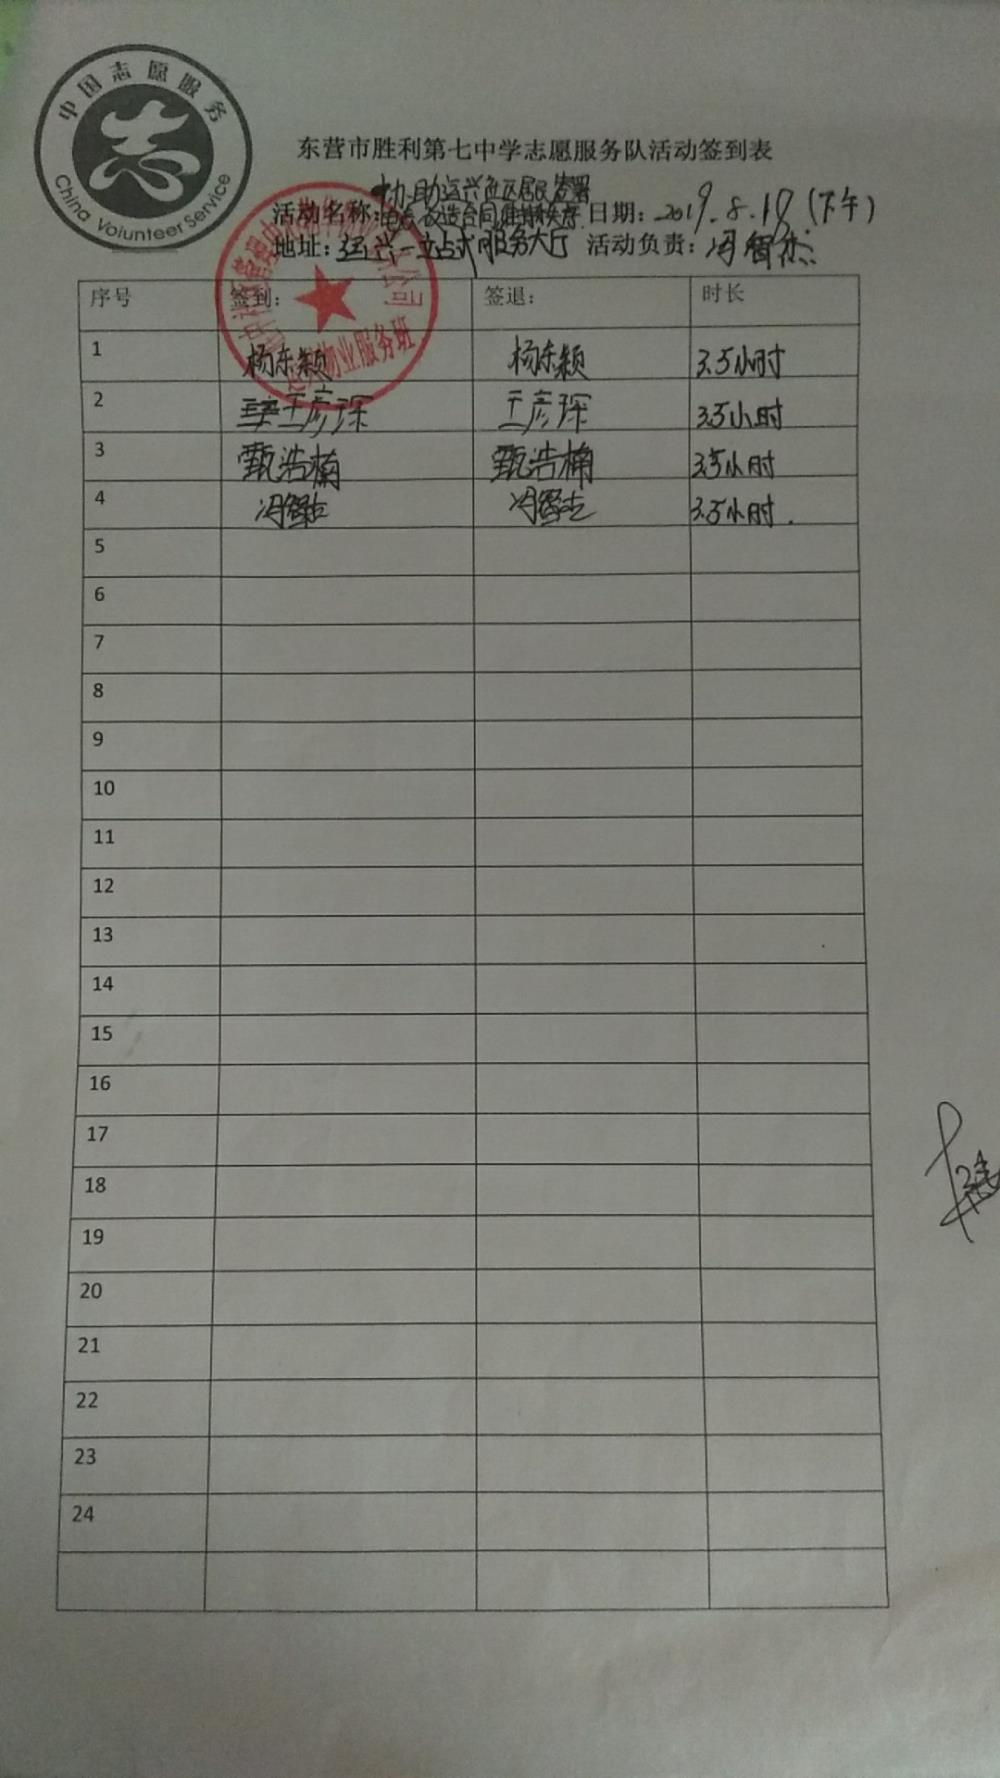 中国志愿服务
志
China Volunteer Service
东营市胜利第七中学志愿服务队活动签到表
协助运兴社区居民签署
活动名称:电表改造合同维持秩序 日期:2019.8.19(下午)
地址:运兴一站式服务大厅 活动负责:冯智杰
序号 签到: 签退: 时长
物业服务班
1 杨东颖 杨东颖 3.5小时
2 王彦琛 王彦琛 3.5小时
3 甄浩楠 甄浩楠 3.5小时
4 冯智杰 冯智杰 3.5小时.
5
6
7
8
9
10
11
12
13
14
15
16
17
18
19
20
21
22
23
24